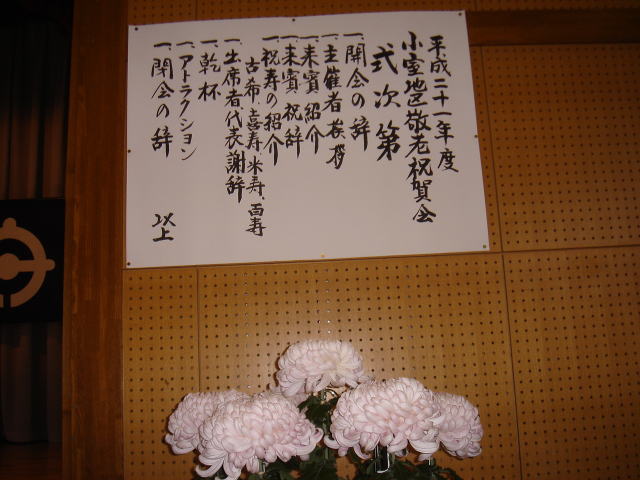 平成二十一年度
小室地区敬老祝賀会
式次第
一、開会の辞
一、主催者挨拶
一、来賓紹介
一、来賓祝辞
一、祝寿の紹介
古希、喜寿、米寿、百寿
一、出席者代表謝辞
一、乾杯
一、アトラクション
一、閉会の辞
以上